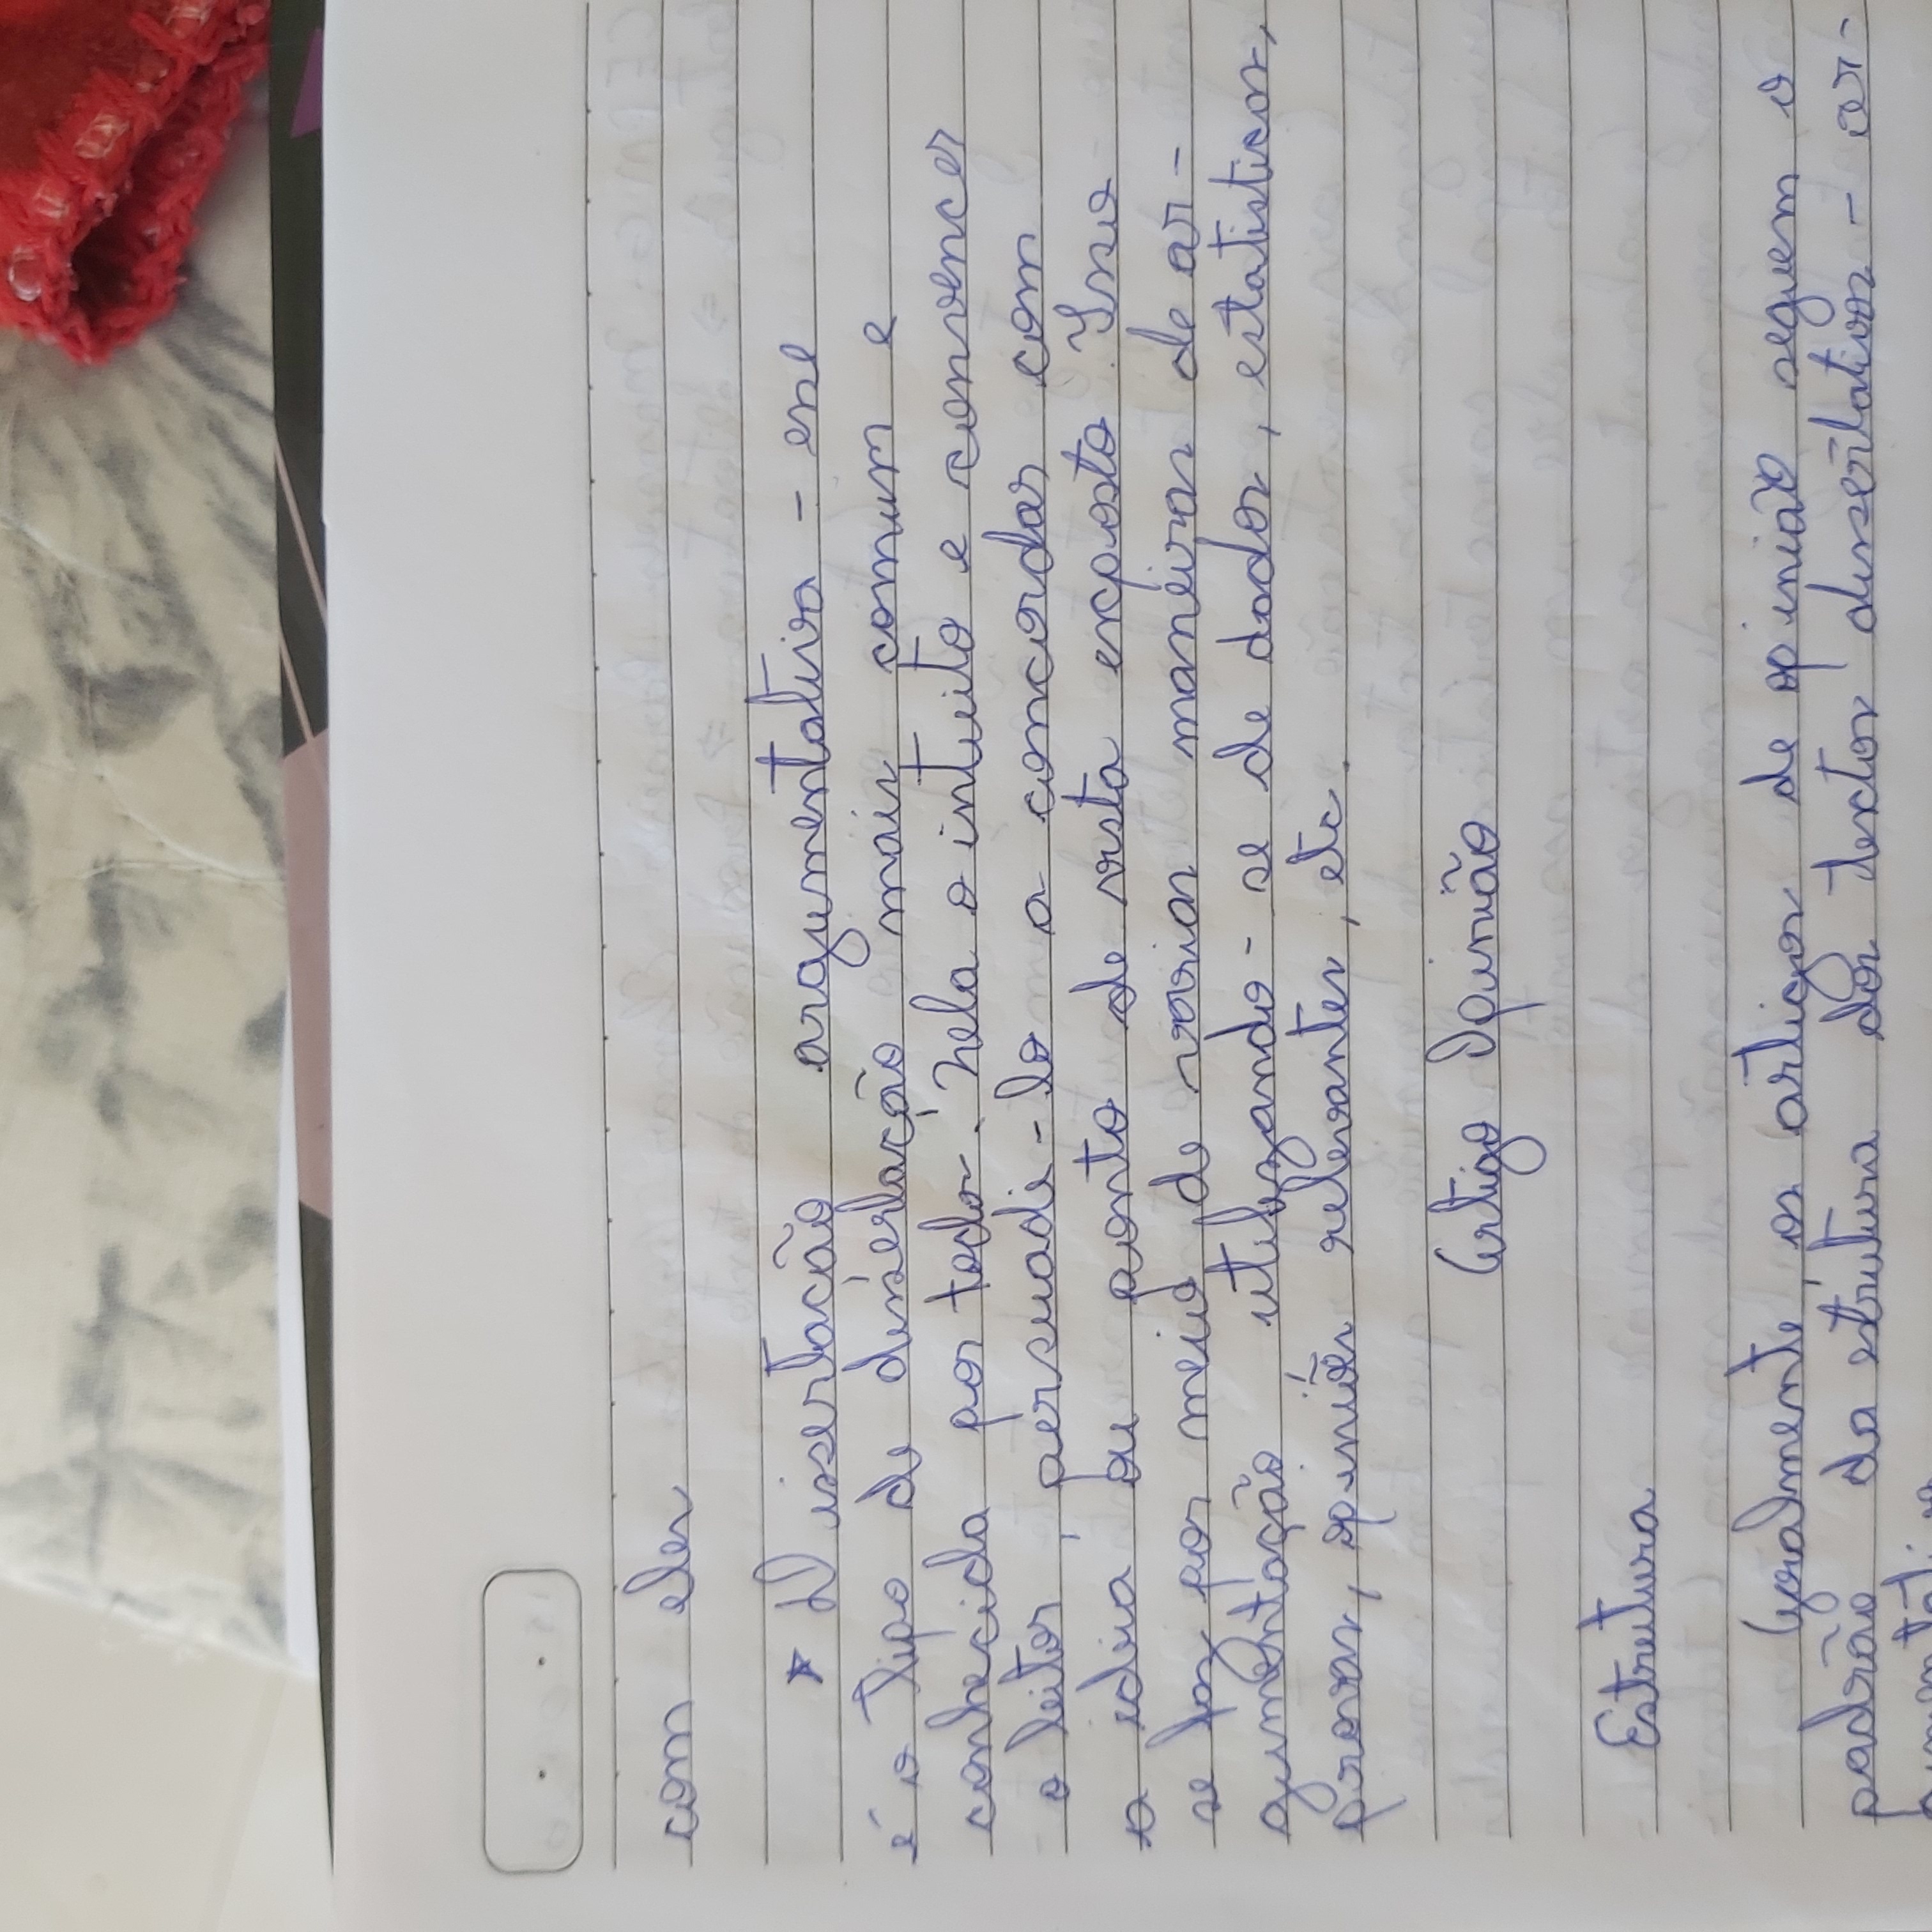 com eles
* Dissertação argumentativa - esse
é o tipo de dissertação mais comum e
conhecida por todos. Nela o intuito e convencer
o leitor, persuadi-lo a concordar com
a idéia ou ponto de vista exposto. Isso
se faz por meio de varias maneiras de ar-
gumentação, utilizando-se de dados, estatisticas,
provas, opiniões relevantes, etc.
Artigo Opinião
Estrutura
Geralmente, os artigos de opinião seguem o
padrão da estrutura dos textos dissertativos - ar-